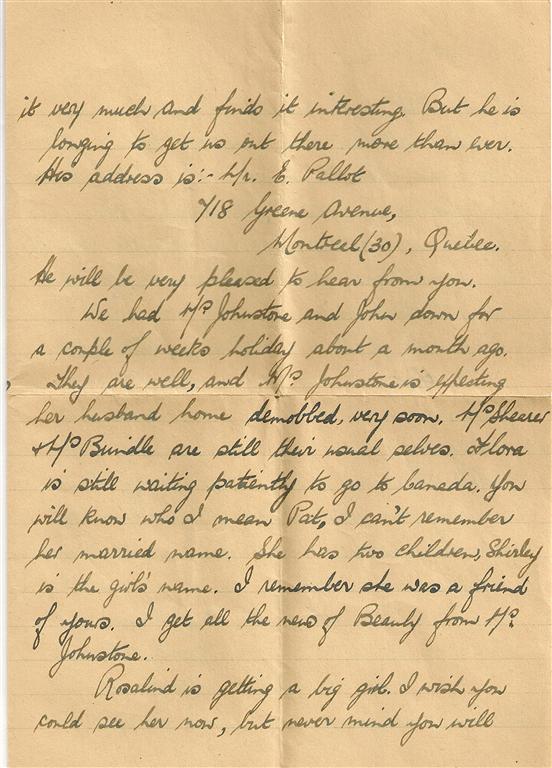 it very much and finds it interesting. But he is
longing to get us out there more than ever.
His address is:- Mr. E. Pallot
718 Greene Avenue,
Montreal (30), Quebec.
He will be very pleased to hear from you.
We had Mrs Johnstone and John down for
a couple of weeks holiday about a month ago.
They are well, and Mrs. Johnstone is expecting
her husband home demobbed, very soon. Mrs Shearer
& Mrs Brindle are still their usual selves. Flora
is still waiting patiently to go to Canada. You
will know who I mean Pat, I can't remember
her married name. She has two children, Shirley
is the girl's name. I remember she was a friend
of yours. I get all the news of Beauly from Mrs.
Johnstone.
Rosalind is getting a big girl. I wish you
could see her now, but never mind you will